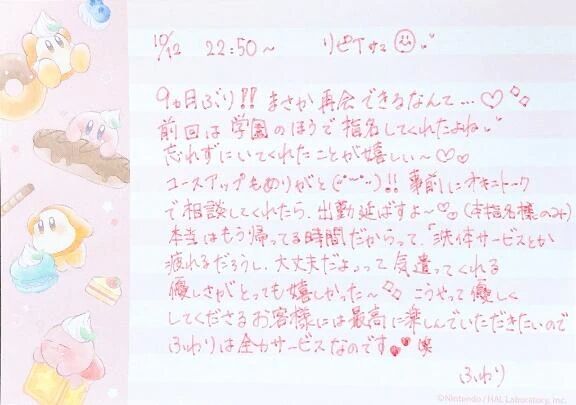 10/12 22:50〜 リピTさま
9ヵ月ぶり!! まさか再会できるなんて…♡
前回は学園のほうで指名してくれたよね
忘れずにいてくれたことが嬉しい〜♡♡
コースアップもありがと(˶ᵔᵕᵔ˶)!! 事前にオキニトーク
で相談してくれたら、出勤延ばすよ〜♡(本指名様のみ)
本当はもう帰ってる時間だからって、「洗体サービスとか
疲れるだろうし、大丈夫だよ」って気遣ってくれる
優しさがとっても嬉しかった〜 こうやって優しく
してくださるお客様には最高に楽しんでいただきたいので
ふわりは全力サービスなのです♥♥
ふわり
©Nintendo / HAL Laboratory, Inc.